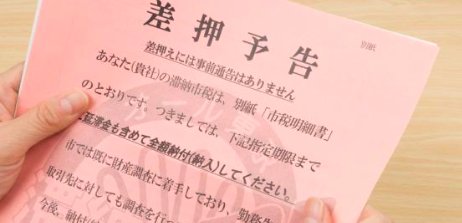 差押予告
別紙
差押えには事前通告はありません
あなた(貴社)の滞納市税は、別紙「市税明細書」
のとおりです。つきましては、下記指定期限まで
に延滞金も含めて全額納付(納入)してください。
市では既に財産調査に着手しており、勤務先
取引先に対しても調査を行っ
今後、納付